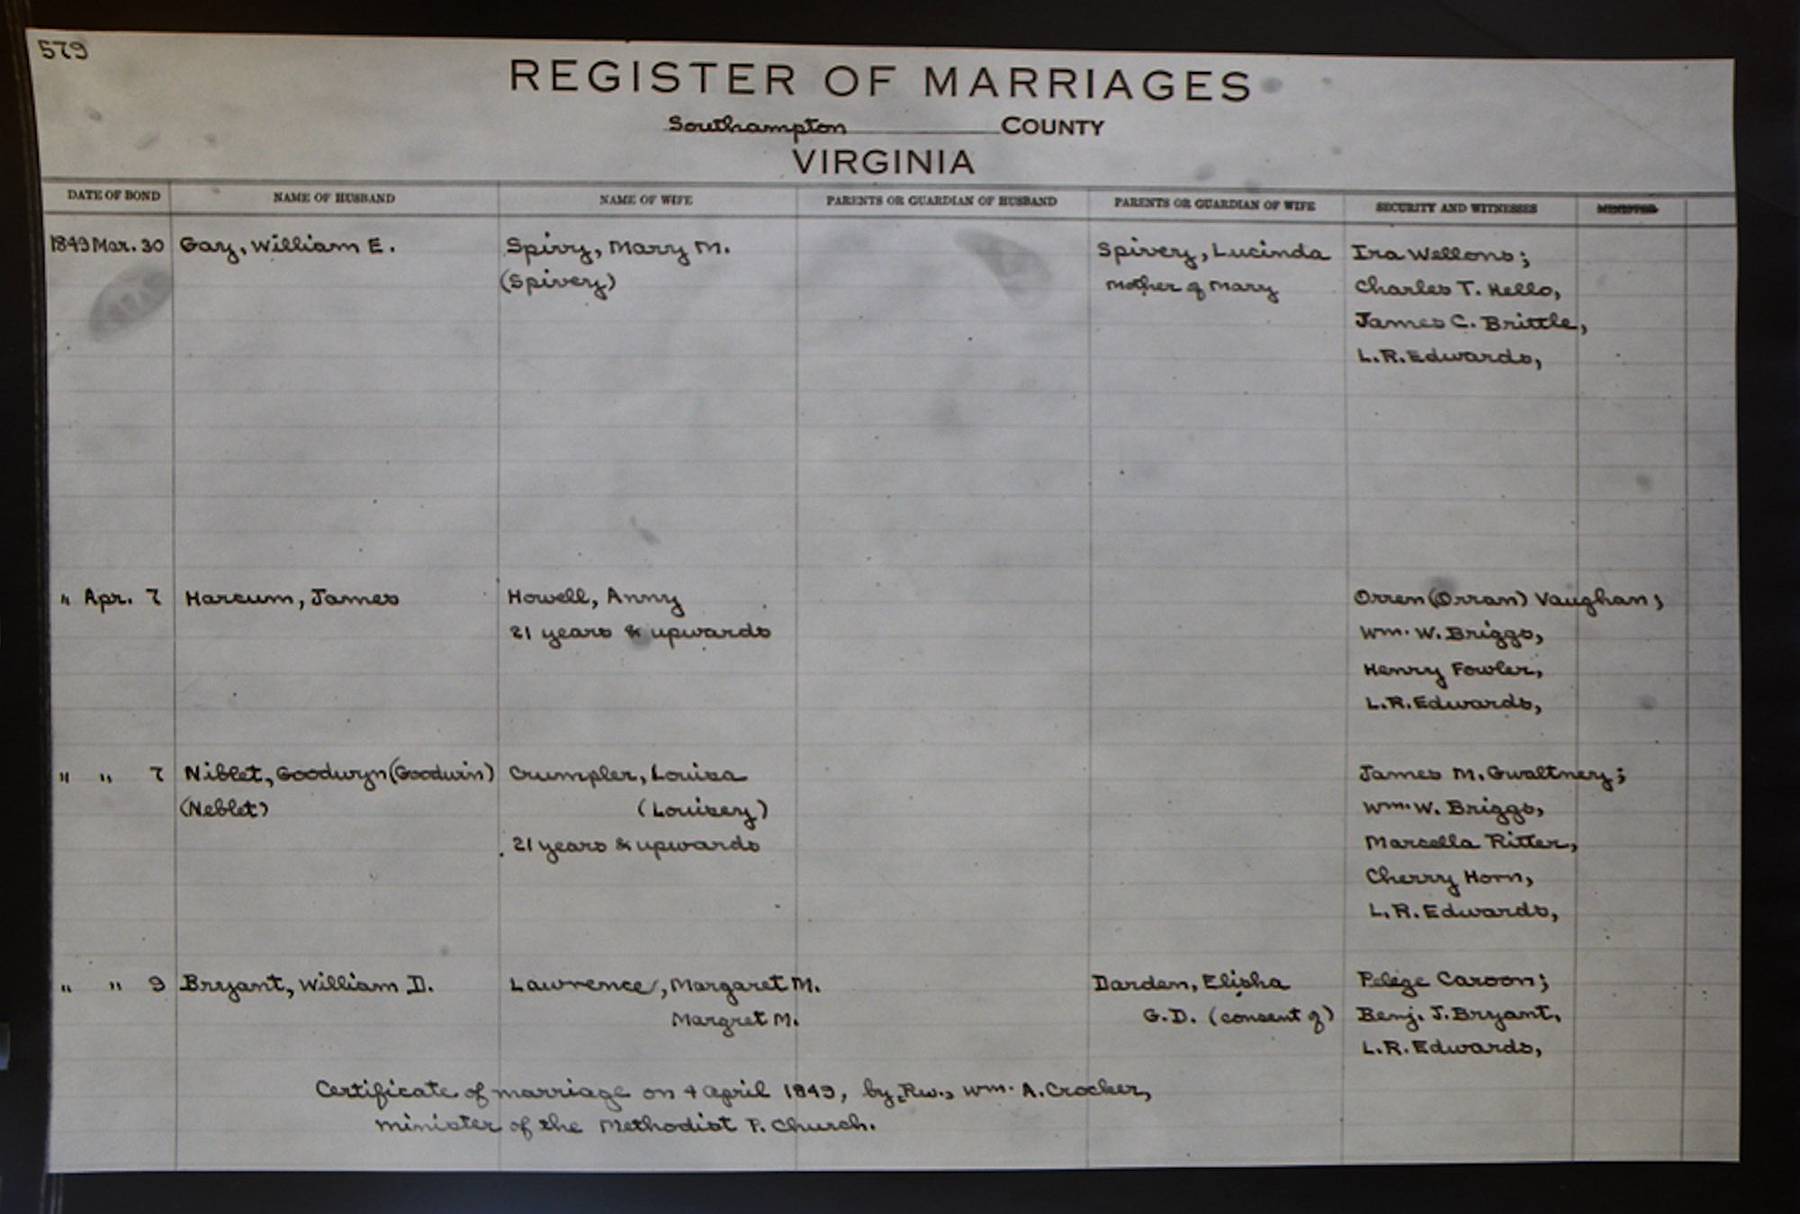 579
REGISTER OF MARRIAGES
Southampton COUNTY
VIRGINIA
DATE OF BOND NAME OF HUSBAND NAME OF WIFE PARENTS OR GUARDIAN OF HUSBAND PARENTS OR GUARDIAN OF WIFE SECURITY AND WITNESSES MINISTER
1849 Mar. 30 Gay, William E. Spivy, Mary M. Spivery, Lucinda Ira Wellons;
(Spivery) Mother of Mary Charles T. Hello,
James C. Brittle,
L.R. Edwards,
" Apr. 7 Harcum, James Howell, Anny Orren (Orran) Vaughan;
21 years & upwards Wm. W. Briggs,
Henry Fowler,
L.R. Edwards,
" " 7 Niblet, Goodwyn (Goodwin) Crumpler, Louisa James M. Gwaltney;
(Neblet) (Louisey) Wm. W. Briggs,
21 years & upwards Marcella Ritter,
Cherry Horn,
L.R. Edwards,
" " 9 Bryant, William D. Lawrence, Margaret M. Darden, Elisha Pelege Caroon;
Margret M. G.D. (consent of) Benj. J. Bryant,
L.R. Edwards,
Certificate of marriage on 4 April 1849, by Rev., Wm. A. Crocker,
minister of the Methodist P. Church.